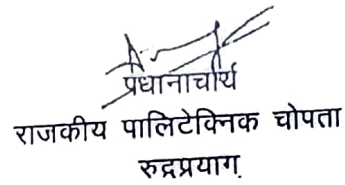 प्रधानाचार्य
राजकीय पालिटेक्निक चोपता
रुद्रप्रयाग